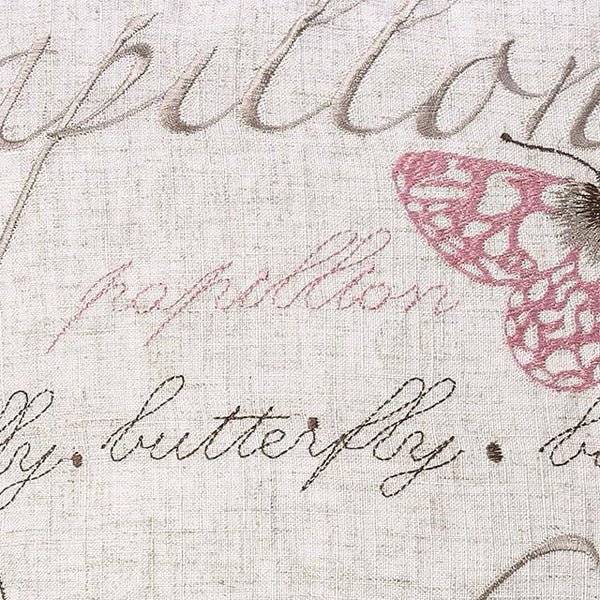 apillon
papillion
ly. butterfly . bu